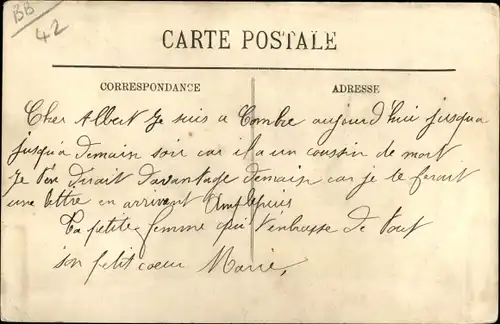 BB
42
CARTE POSTALE
CORRESPONDANCE
ADRESSE
Cher Albert Je suis a Combre aujourd'hui jusqua
jusqu'a demain soir car il a un coussin de mort
Je t'en dirait davantage demain car je te ferait
une lettre en arrivent Amplepuis
Ta petite femme qui t'enbrasse de tout
son petit coeur Marie,